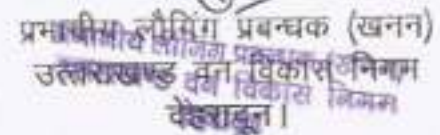 प्रभागीय लौगिंग प्रबन्धक (खनन)
उत्तराखण्ड वन विकास निगम
देहरादून।